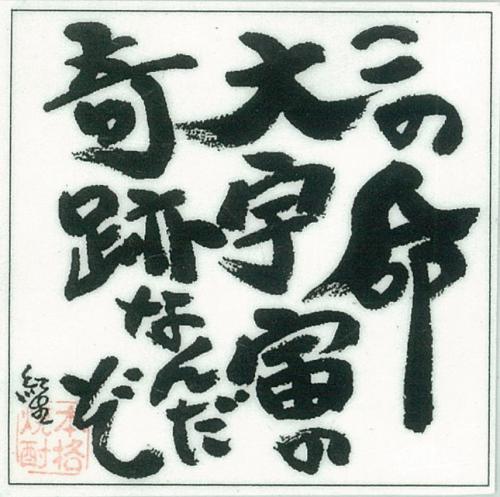 この命
大宇宙の
奇跡
なんだ
ぞ
本格
焼酎